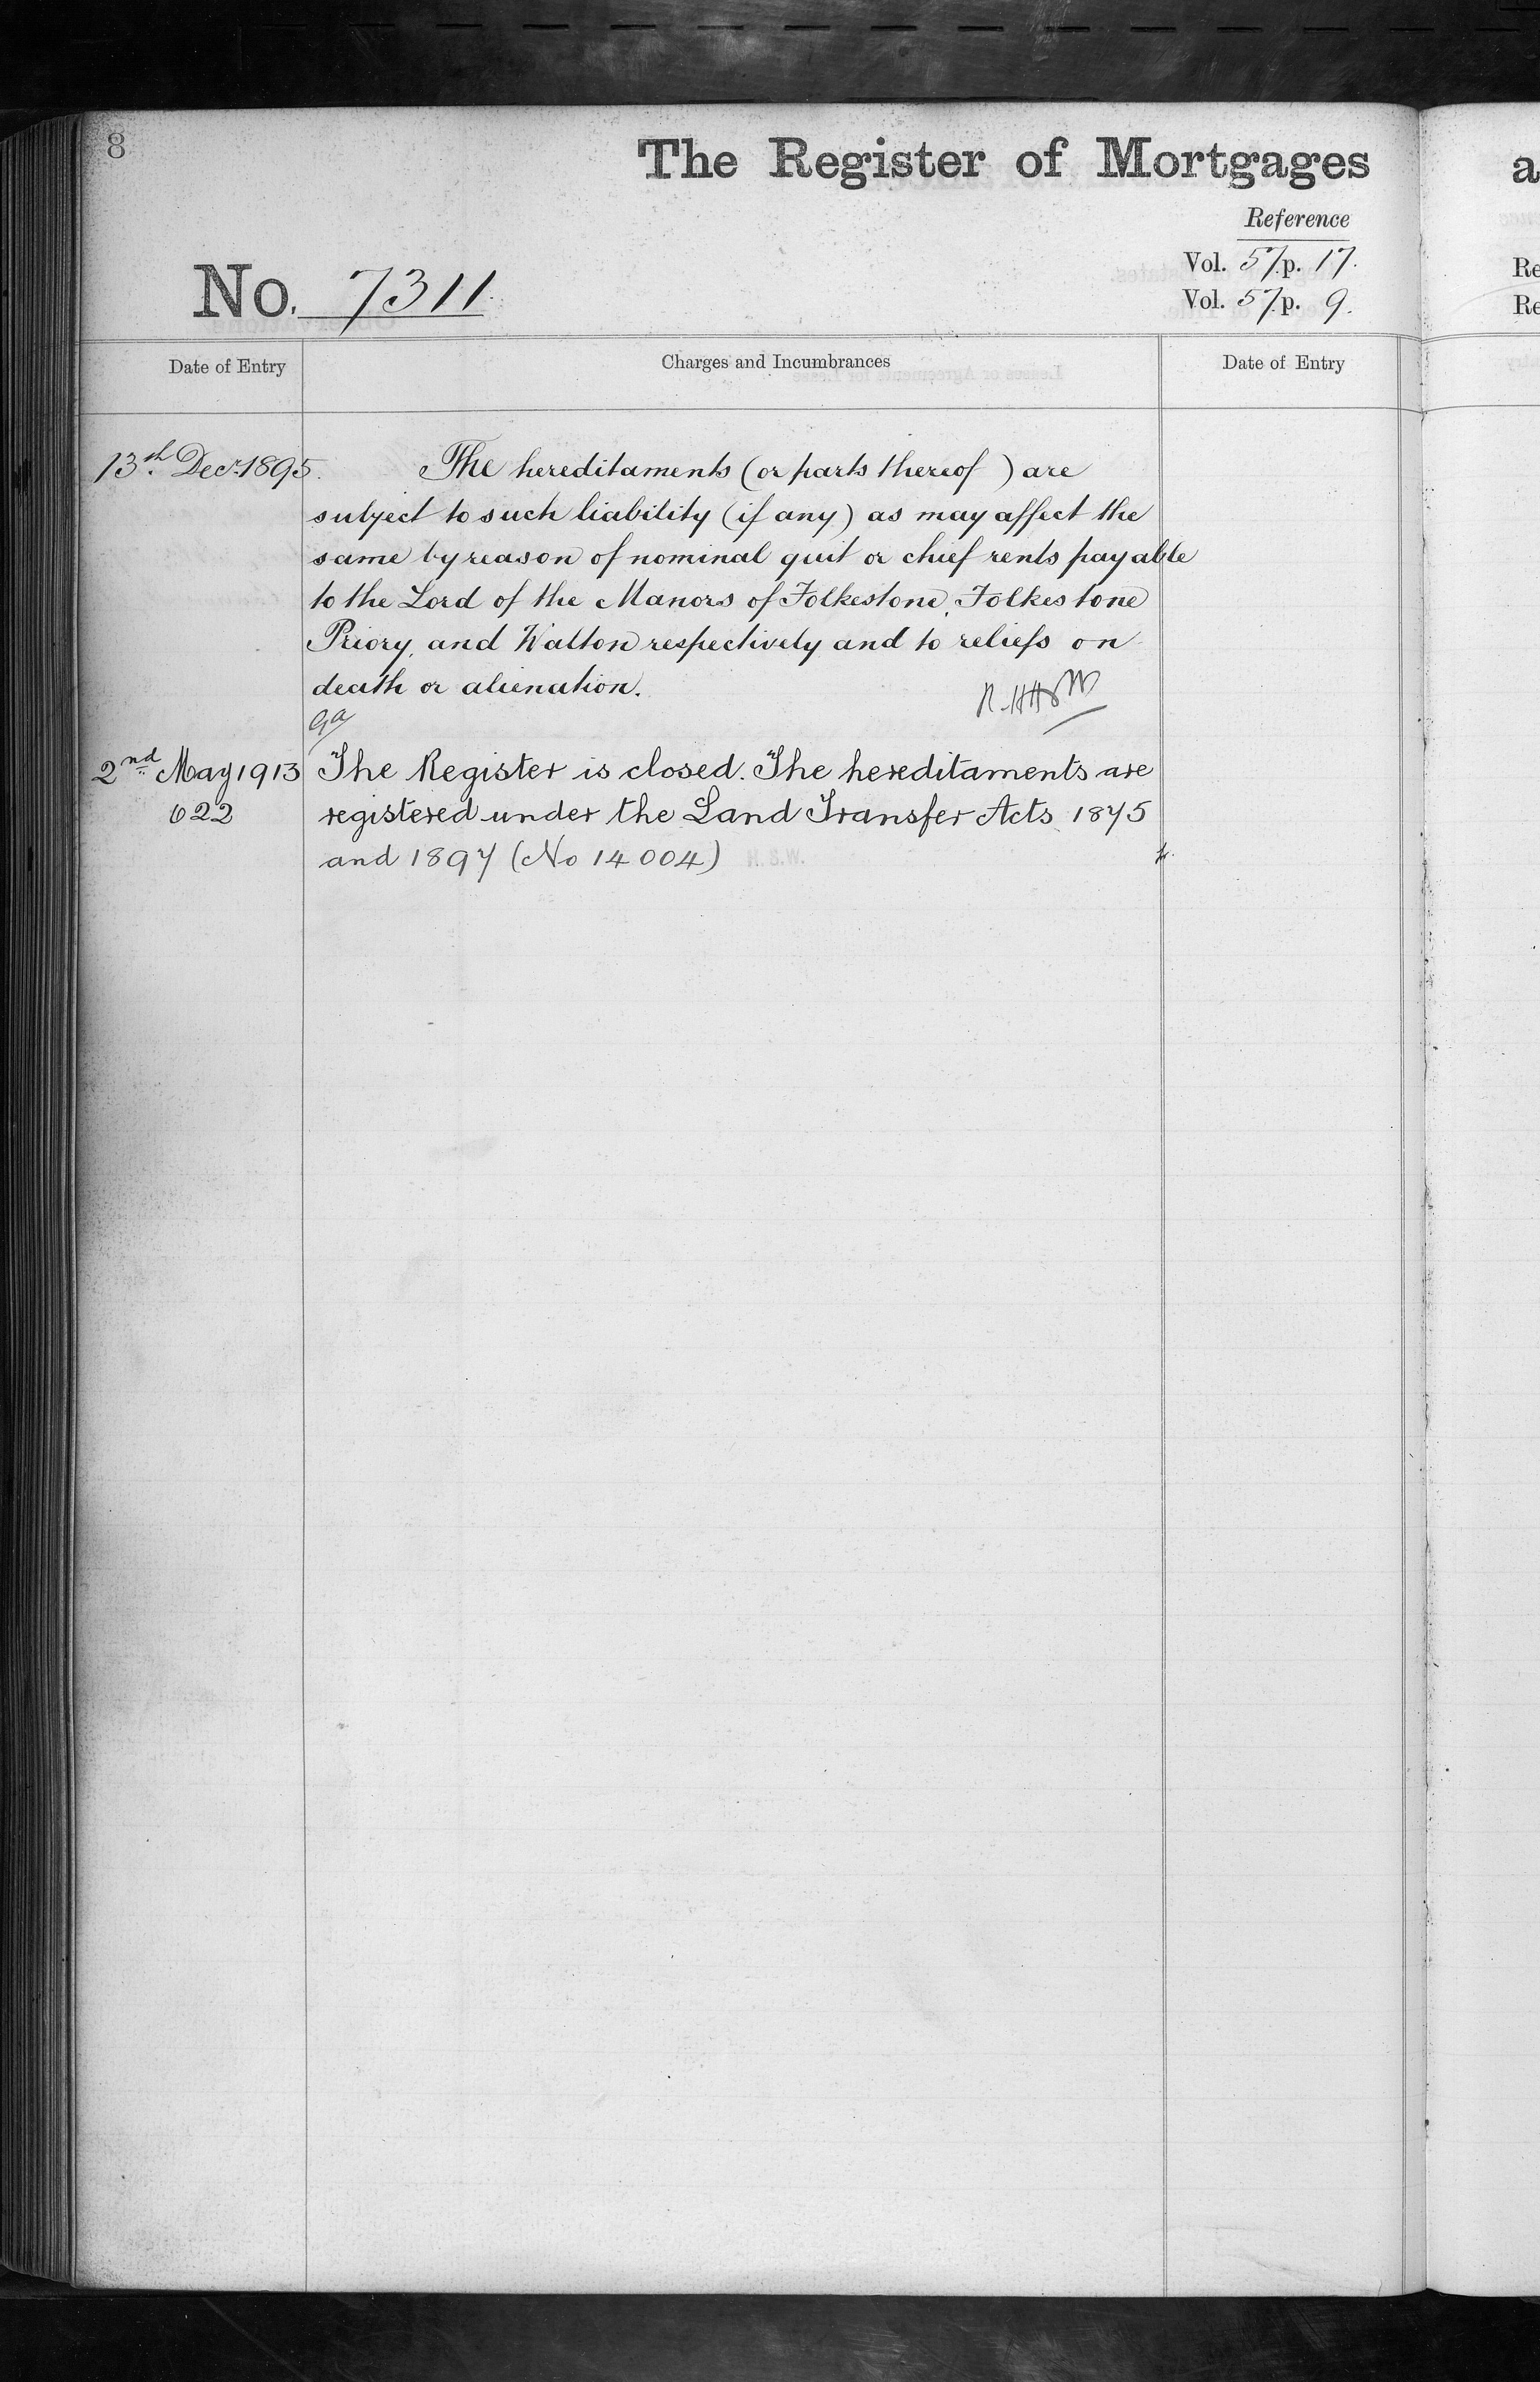 8
The Register of Mortgages
Reference
Vol. 57. p. 17.
Vol. 57. p. 9.
No. 7311.
Date of Entry
Charges and Incumbrances
Date of Entry
13th. Decr. 1895.
The hereditaments (or parts thereof ) are
subject to such liability (if any) as may affect the
same by reason of nominal quit or chief rents payable
to the Lord of the Manors of Folkestone, Folkestone
Priory, and Walton respectively and to reliefs on
death or alienation.
2nd May 1913
622
The Register is closed. The hereditaments are
registered under the Land Transfer Acts 1875
and 1897 (No 14004)
H.S.W.
a
Re
Re